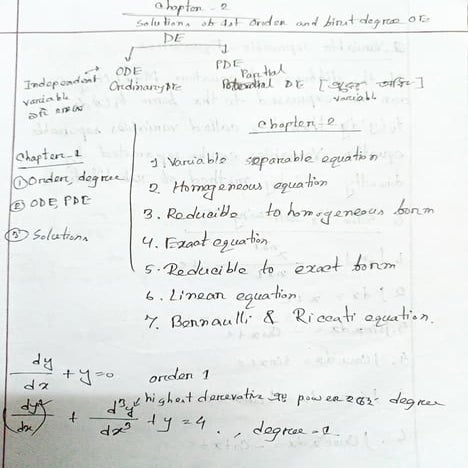 Chapter - 2
Solutions of 1st order and first degree DE
DE
ODE PDE
Independent Ordinary DE Partial DE
variable variable
Chapter 2
Chapter-1
① Order, degree 1. Variable separable equation
② ODE, PDE 2. Homogeneous equation
③ Solutions 3. Reducible to homogeneous form
4. Exact equation
5. Reducible to exact form
6. Linear equation
7. Bernoulli & Riccati equation.
dy/dx + y = 0 order 1
highest derivative power degree
(dy/dx) + d³y/dx³ + y = 4 degree - 1